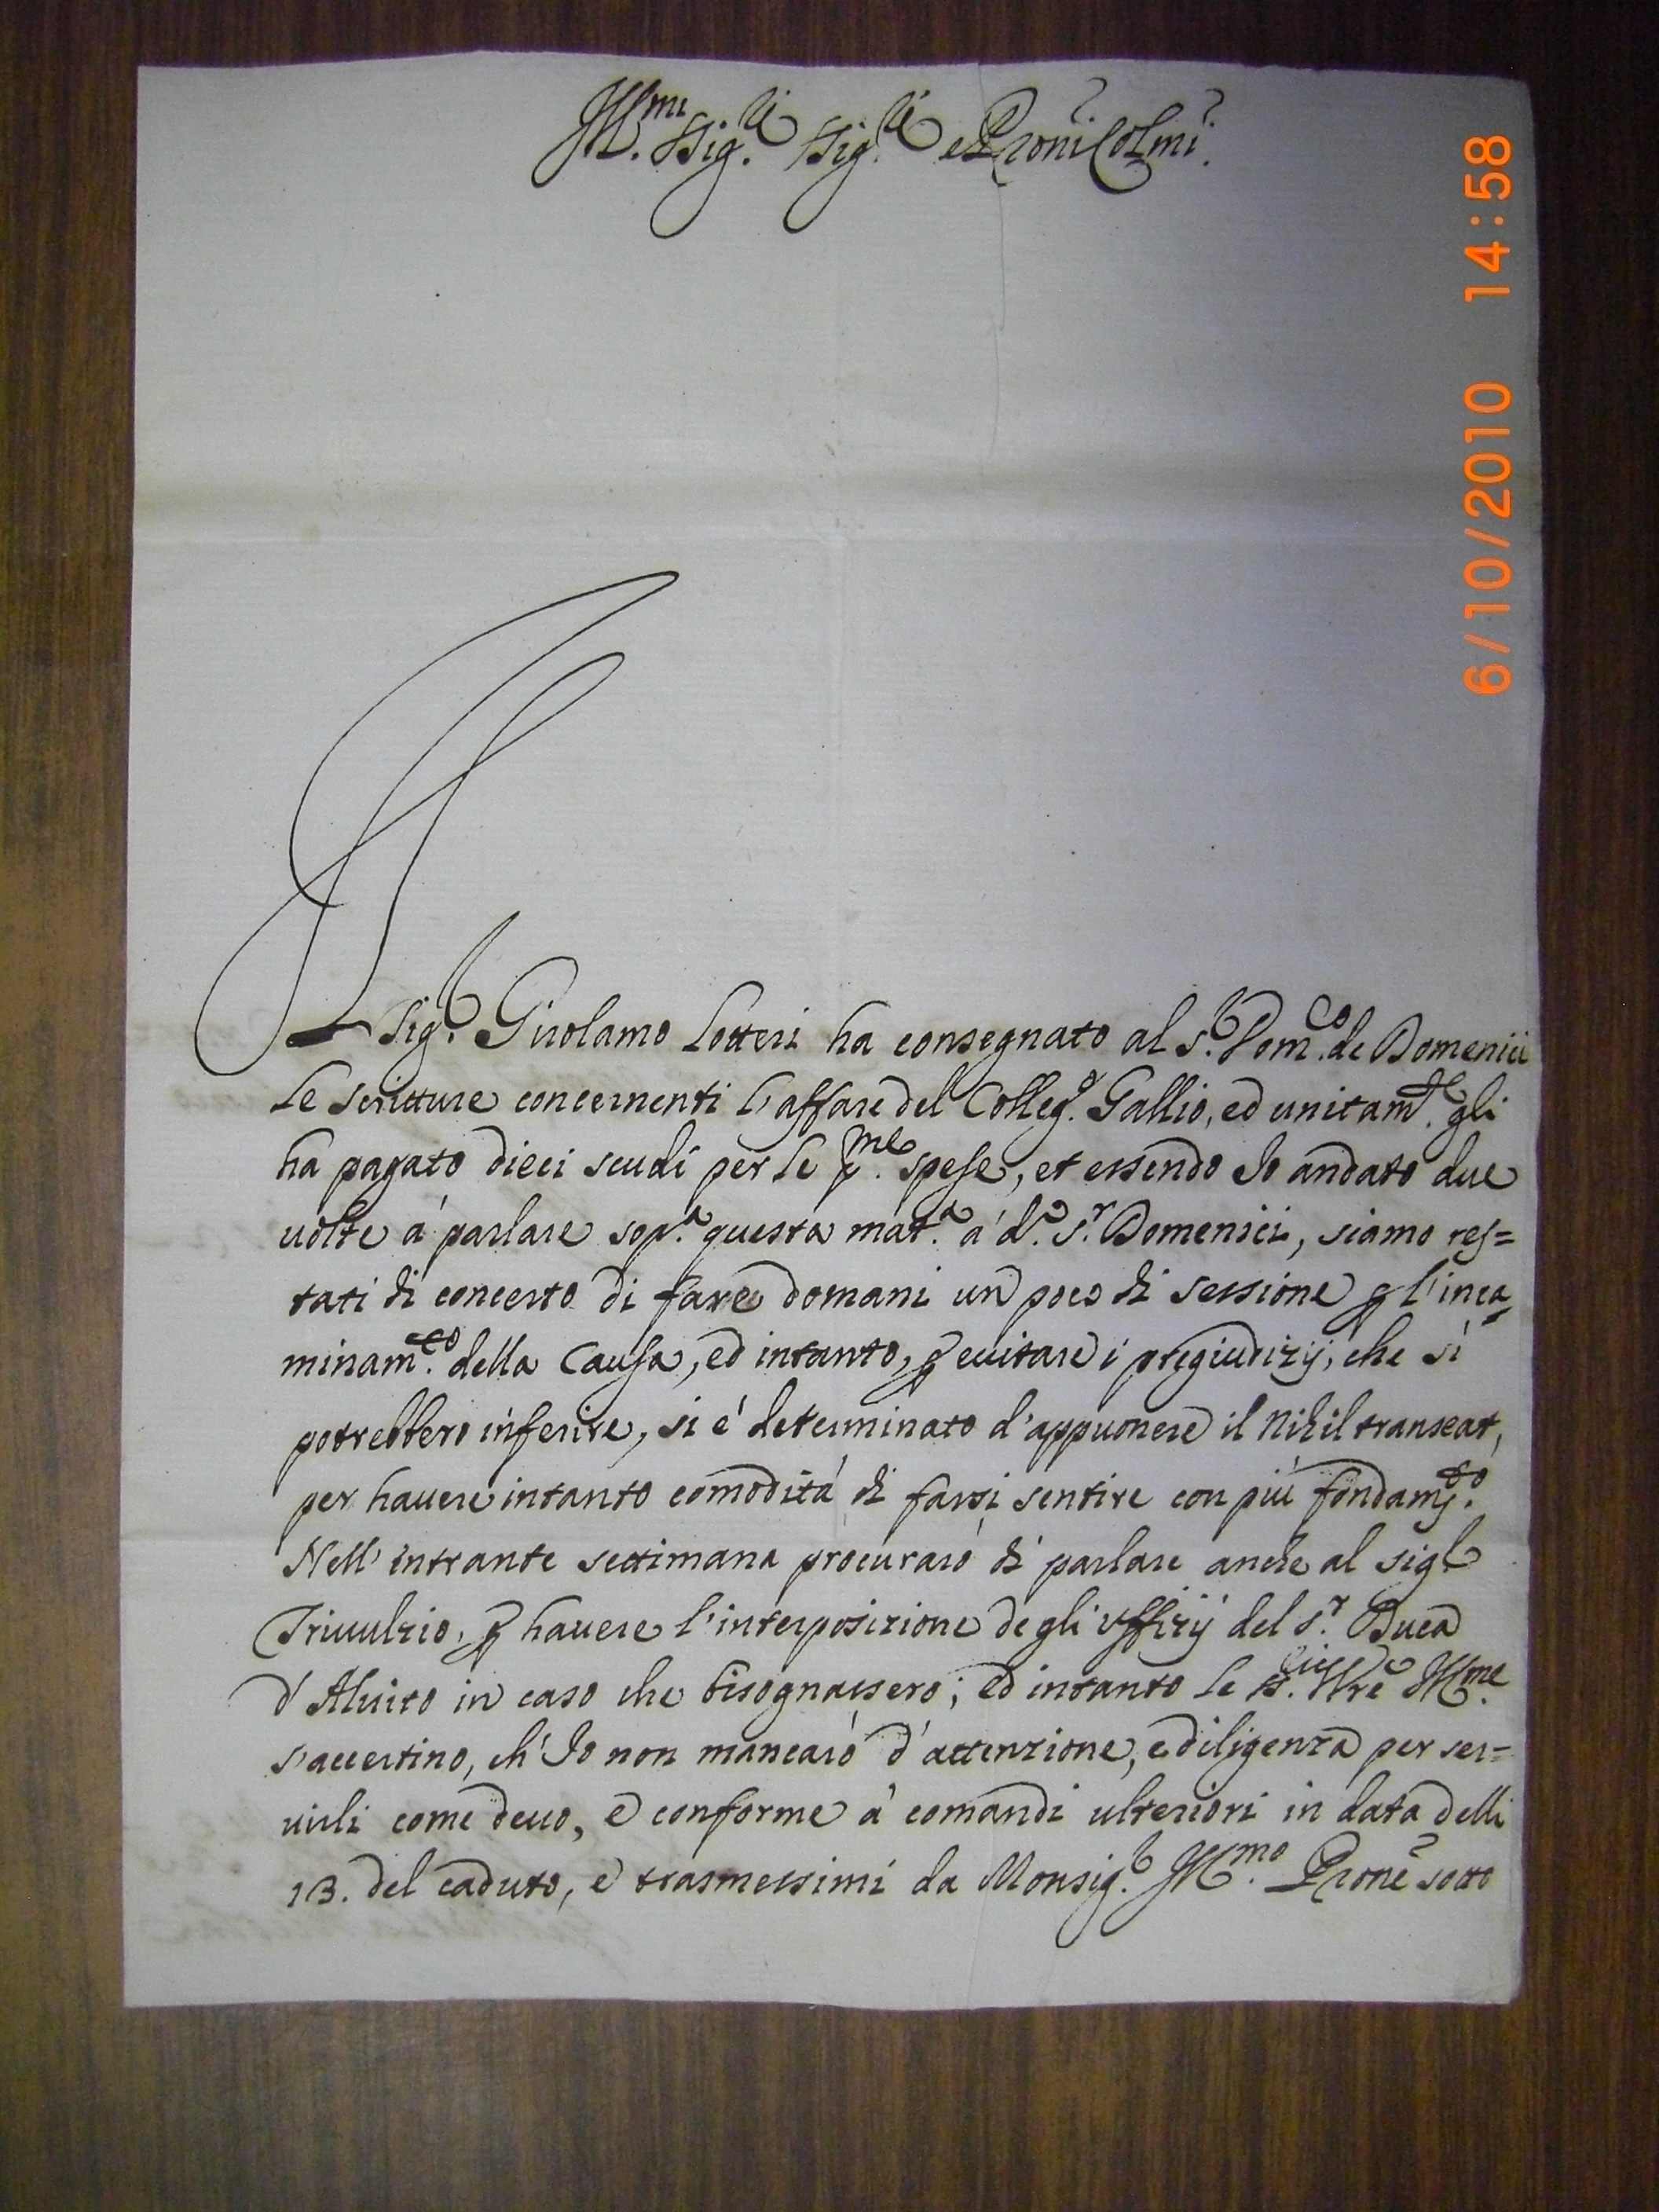 Ill.mi Sig.ri Sig.ri et Proni Colmi.
Il Sig.r Girolamo Lotteri ha consegnato al S.r Dom.co de Domenici
le scritture concernenti l'affare del Colleg.o Gallio, ed unitam.te gli
ha pagato dieci scudi per le p.me spese, et essendo Io andato due
uolte á parlare sop.a questa mat.a á d.o S.r Domenici, siamo res=
tati di concerto di fare domani un poco di sessione p l'inca
minam.to della Causa, ed intanto, p euitare i pregiudizij, che si
potrebbero inferire, si é determinato d'appuonere il Nihil transeat,
per hauere intanto comodità di farsi sentire con più fondam.to
Nell' intrante settimana procuraró di parlare anche al Sig.r
Triuulzio, p hauere l'interposizione de gli uffizij del S.r Duca
d'Aluito in caso che bisognassero; ed intanto le Ill.me
s'accertino, ch' Io non mancaró d'attenzione, e diligenza per ser=
uirli come deuo, e conforme á comandi ulteriori in data delli
13. del caduto, e trasmessimi da Monsig.r Ill.mo Prone sotto
6/10/2010 14:58